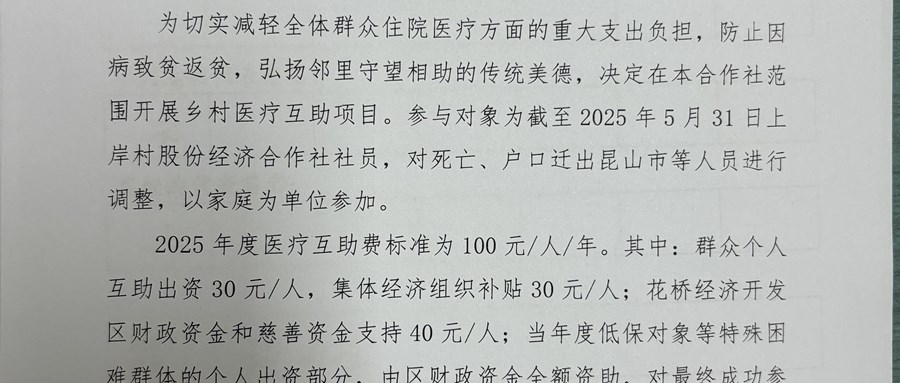 为切实减轻全体群众住院医疗方面的重大支出负担，防止因
病致贫返贫，弘扬邻里守望相助的传统美德，决定在本合作社范
围开展乡村医疗互助项目。参与对象为截至 2025 年 5 月 31 日上
岸村股份经济合作社社员，对死亡、户口迁出昆山市等人员进行
调整，以家庭为单位参加。
2025 年度医疗互助费标准为 100 元/人/年。其中：群众个人
互助出资 30 元/人，集体经济组织补贴 30 元/人；花桥经济开发
区财政资金和慈善资金支持 40 元/人；当年度低保对象等特殊困
难群体的个人出资部分，由区财政资金全额资助，对最终成功参